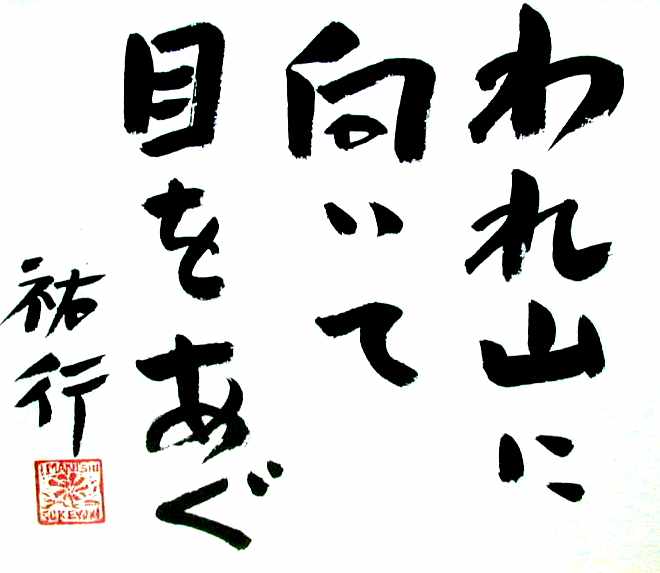 われ山に
向いて
目をあぐ
祐行
IMANISHI
SUKEYUKI